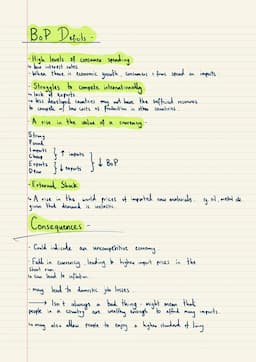 BoP Deficits -
- High levels of consumer spending
↳ low interest rates
- When there is economic growth, consumers + firms spend on imports
- Struggles to compete internationally
↳ lack of exports
↳ less developed countries may not have the sufficient resources
to compete w/ low costs of production in other countries.
- A rise in the value of a currency -
Strong
Pound
Imports
Cheap
Exports
Dear
↑ imports
↓ exports
↓ BoP
- External Shock
↳ A rise in the world prices of imported raw materials. eg. oil, metal etc
given that demand is inelastic.
Consequences -
- Could indicate an uncompetitive economy.
- Fall in currency, leading to higher import prices in the
short run.
↳ can lead to inflation.
- may lead to domestic job losses.
→ Isn't always a bad thing - might mean that
people in a country are wealthy enough to afford many imports.
↳ may also allow people to enjoy a higher standard of living